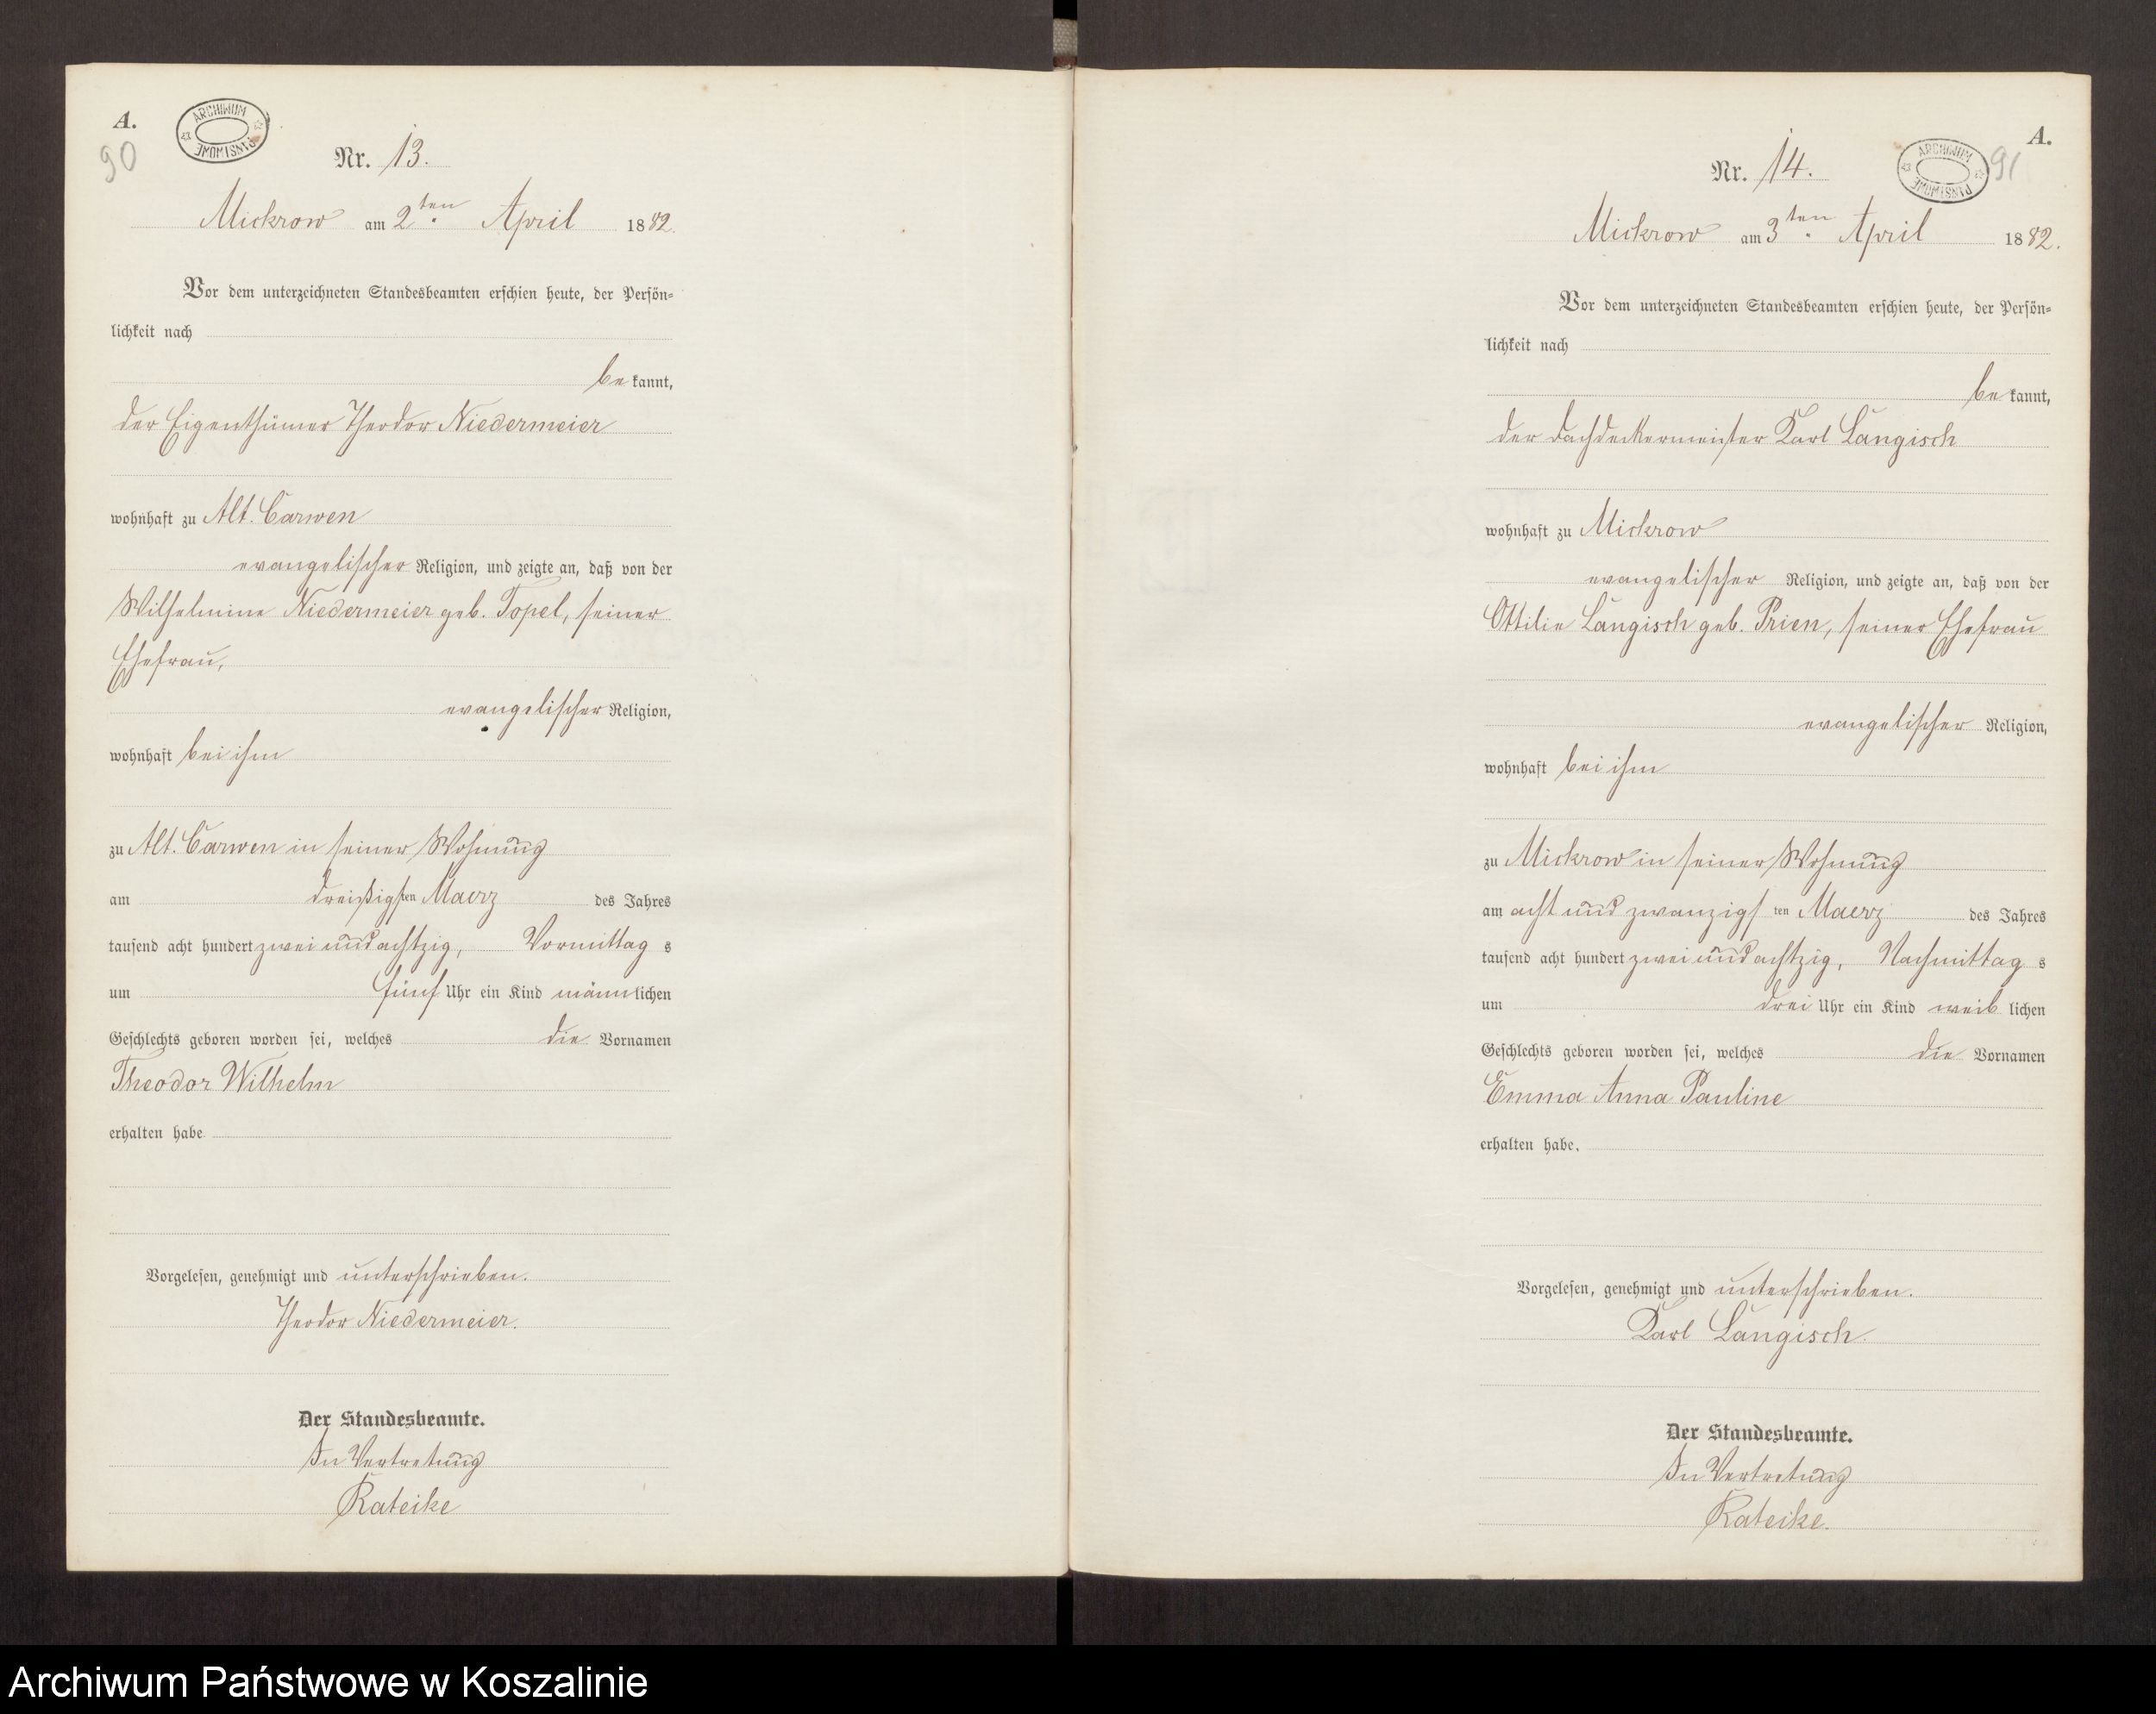 A.
90
ARCHIWUM PAŃSTWOWE
Nr. 13.
Mickrow am 2ten April 1882.
Vor dem unterzeichneten Standesbeamten erschien heute, der Persön-
lichkeit nach
bekannt,
der Eigenthümer Theodor Niedermeier
wohnhaft zu Alt. Carwen
evangelischer Religion, und zeigte an, daß von der
Wilhelmine Niedermeier geb. Topel, seiner
Ehefrau,
evangelischer Religion,
wohnhaft bei ihm
zu Alt. Carwen in seiner Wohnung
am dreißigsten Maerz des Jahres
tausend acht hundert zwei und achtzig, Vormittags
um fünf Uhr ein Kind männlichen
Geschlechts geboren worden sei, welches die Vornamen
Theodor Wilhelm
erhalten habe
Vorgelesen, genehmigt und unterschrieben.
Theodor Niedermeier.
Der Standesbeamte.
In Vertretung
Rateike
A.
91
ARCHIWUM PAŃSTWOWE
Nr. 14.
Mickrow am 3ten April 1882.
Vor dem unterzeichneten Standesbeamten erschien heute, der Persön-
lichkeit nach
bekannt,
der Dachdeckermeister Karl Langisch
wohnhaft zu Mickrow
evangelischer Religion, und zeigte an, daß von der
Ottilie Langisch geb. Prien, seiner Ehefrau
evangelischer Religion,
wohnhaft bei ihm
zu Mickrow in seiner Wohnung
am acht und zwanzigsten Maerz des Jahres
tausend acht hundert zwei und achtzig, Nachmittags
um drei Uhr ein Kind weiblichen
Geschlechts geboren worden sei, welches die Vornamen
Emma Anna Pauline
erhalten habe.
Vorgelesen, genehmigt und unterschrieben.
Karl Langisch.
Der Standesbeamte.
In Vertretung
Rateike.
Archiwum Państwowe w Koszalinie